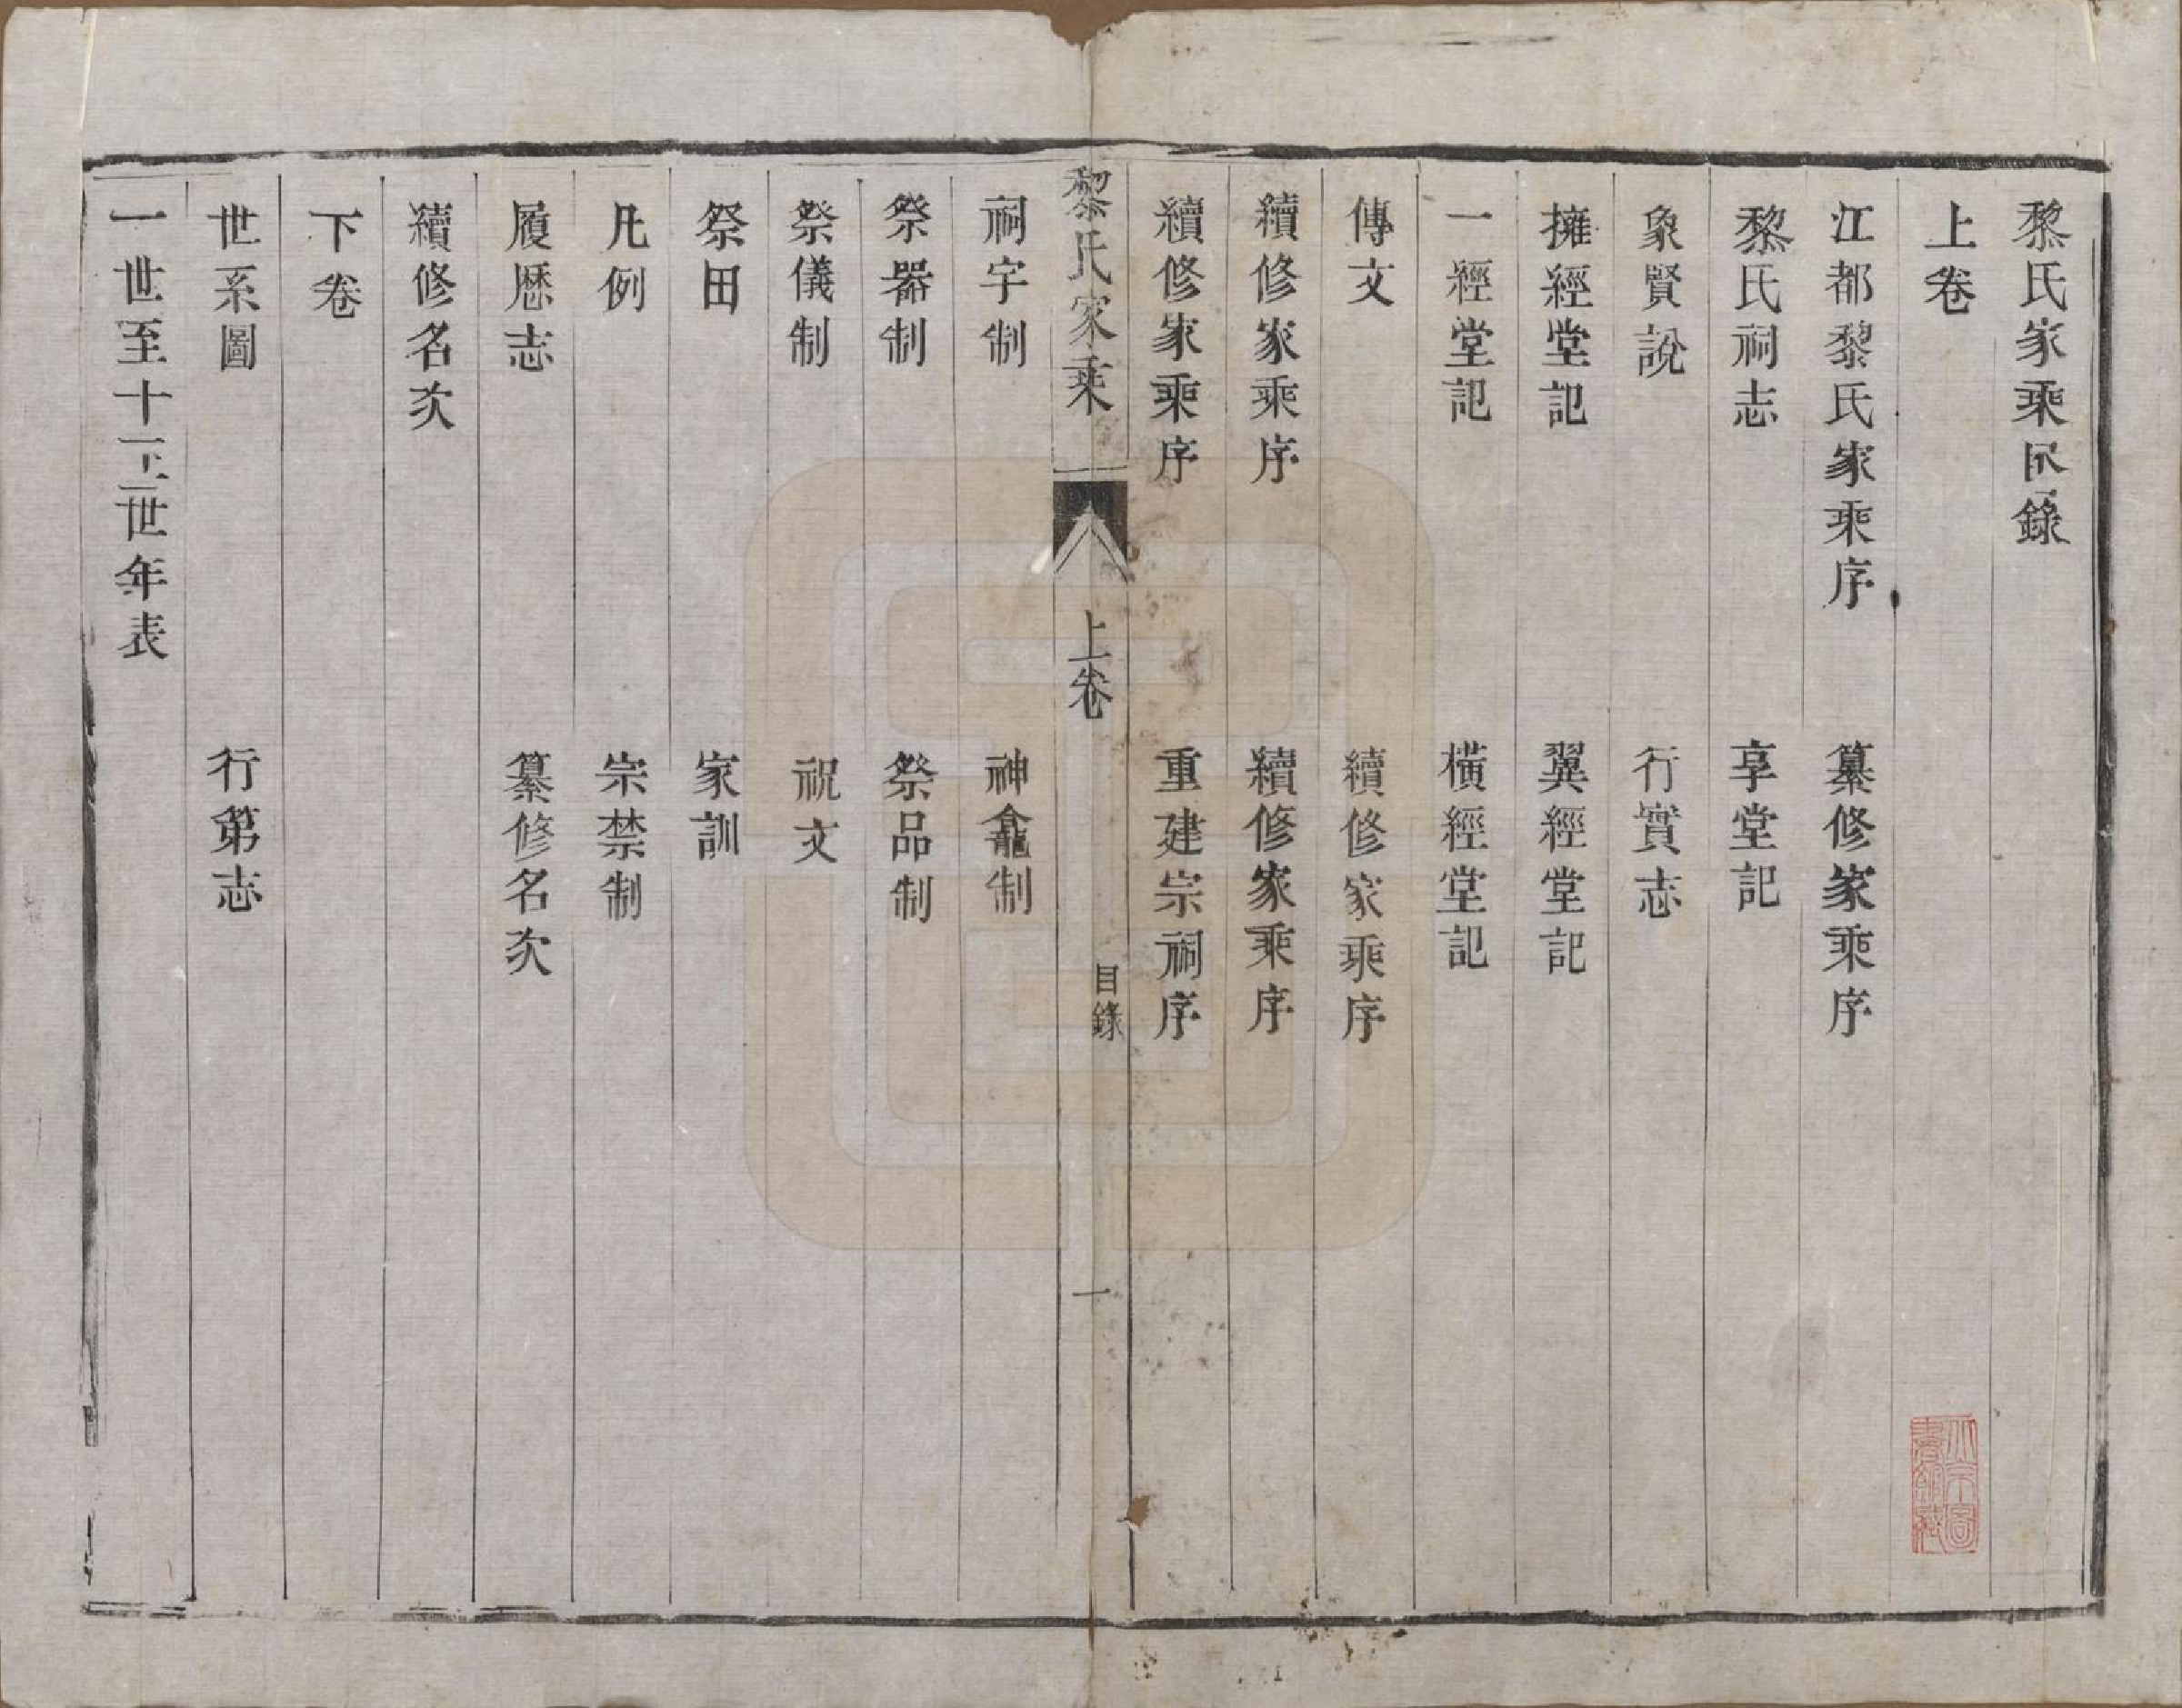 黎氏家乘目錄
上卷
江都黎氏家乘序　纂修家乘序
黎氏祠志　享堂記
象賢說　行實志
擁經堂記　翼經堂記
一經堂記　橫經堂記
傳文　續修家乘序
續修家乘序　續修家乘序
續修家乘序　重建宗祠序
黎氏家乘　上卷　目錄　一
祠宇制　神龕制
祭器制　祭品制
祭儀制　祝文
祭田　家訓
凡例　宗禁制
履歷志　纂修名次
續修名次
下卷
世系圖　行第志
一世至十世年表